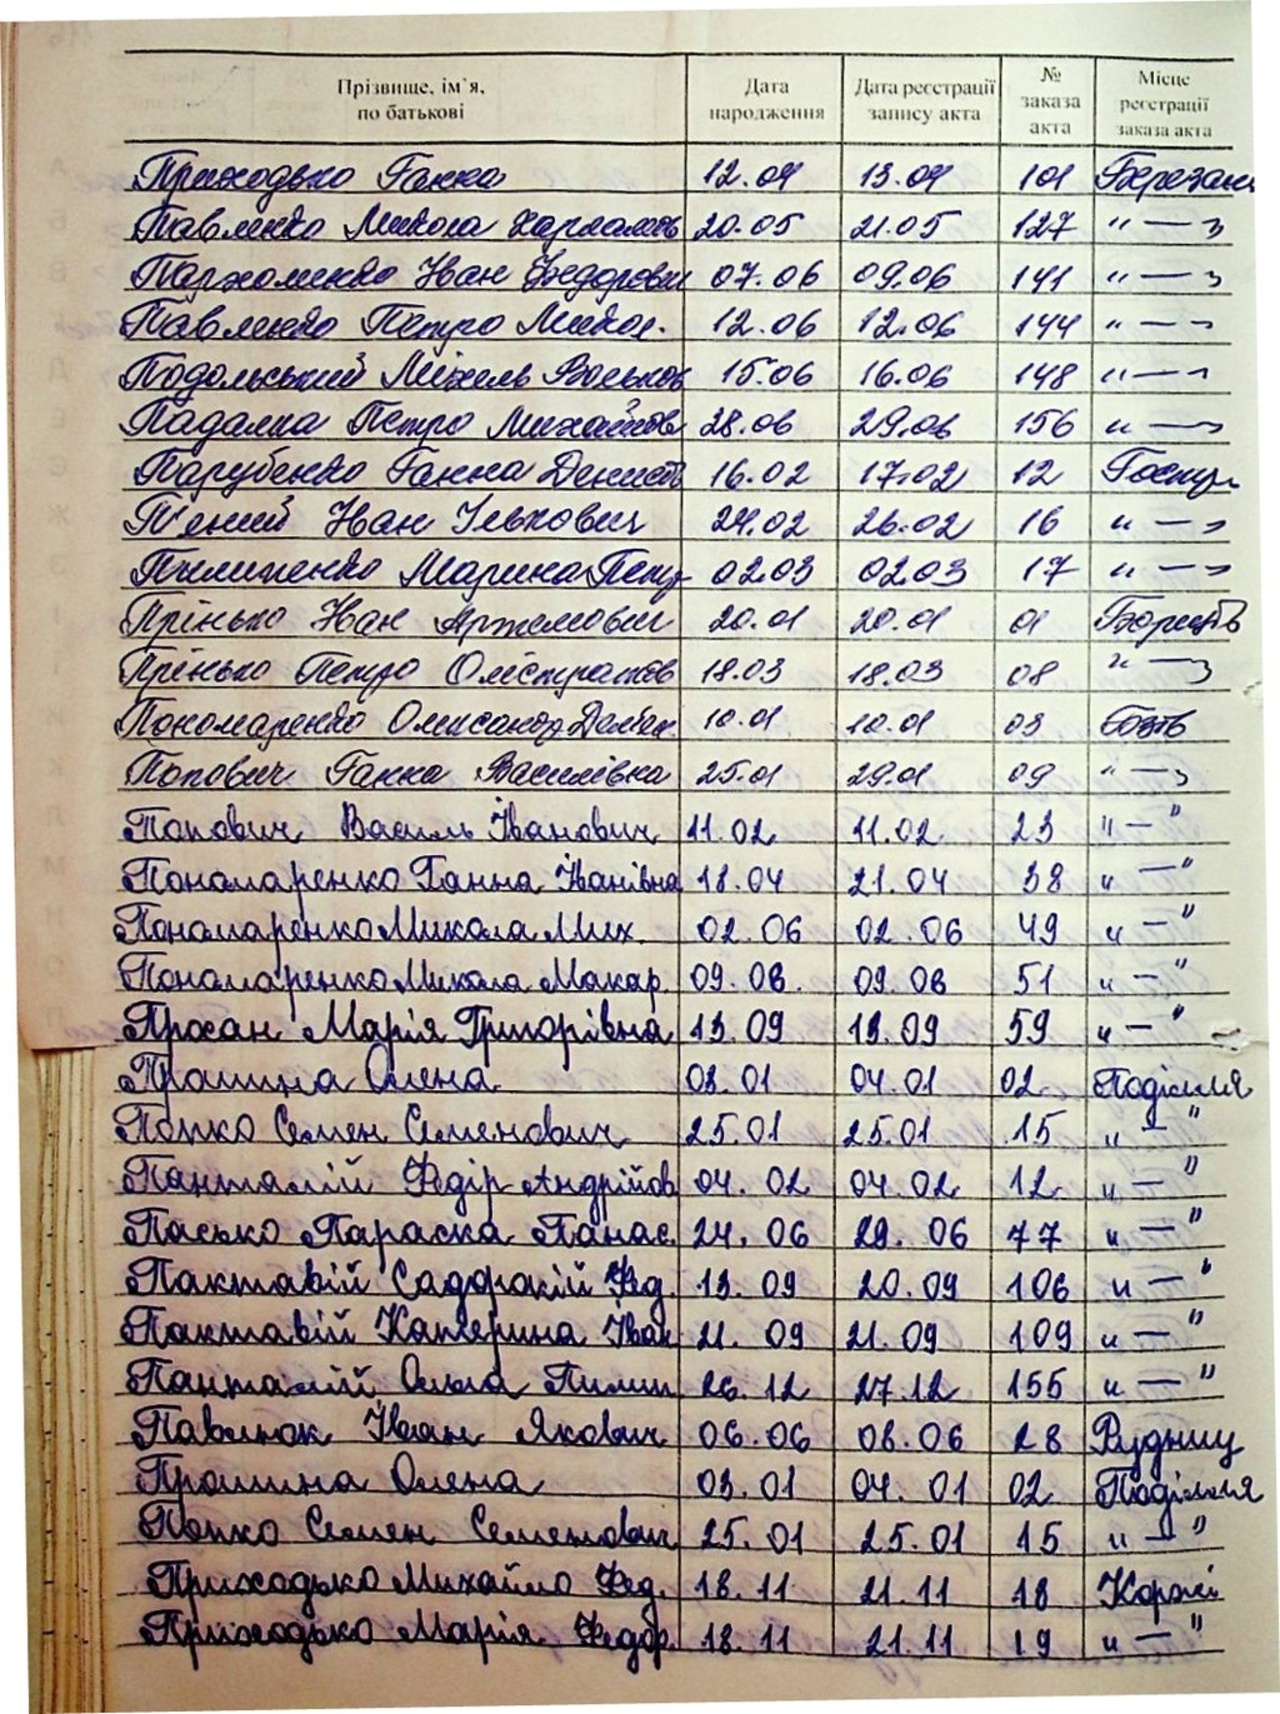 Прізвище, ім'я, по батькові Дата народження Дата реєстрації запису акта № заказа акта Місце реєстрації заказа акта
Приходько Ганна 12.04 13.04 101 Березань
Павленко Микола Харламов 20.05 21.05 127 " — "
Пархоменко Іван Федорович 07.06 09.06 141 " — "
Павленко Петро Микол. 12.06 12.06 144 " — "
Подольський Міхель Вольков 15.06 16.06 148 " — "
Падалка Петро Михайлов 28.06 29.06 156 " — "
Парубенко Ганна Денисів 16.02 17.02 12
П'єний Іван Ількович 24.02 26.02 16 " — "
Пилипенко Марина Петр 02.03 02.03 17 " — "
Прінько Іван Артемович 20.01 20.01 01
Прінько Петро 18.03 18.03 08 " — "
Пономаренко Олександр Дем'ян 10.01 10.01 03
Попович Ганна Василівна 25.01 29.01 09 " — "
Попович Василь Іванович 11.02 11.02 23 " — "
Пономаренко Ганна Іванівна 18.04 21.04 38 " — "
Пономаренко Микола Мих. 02.06 02.06 49 " — "
Пономаренко Микола Макар. 09.08. 09.08 51 " — "
Прохан Марія Григорівна 13.09 19.09 59 " — "
Олена 03.01 04.01 02 Поділля
Попко Семен Семенович 25.01 25.01 15 " — "
Панталій Федір Андрійов 04.02 04.02 12 " — "
Пасько Параска Панас. 24.06 29.06 77 " — "
Пактавій Фед. 13.09 20.09 106 " — "
Пактавій Катерина Іван 21.09 21.09 109 " — "
Панталій Ольга Пилип 26.12 27.12 155 " — "
Павлюк Іван Якович 06.06 08.06 28 Рудниц
Олена 03.01 04.01 02 Поділля
Попко Семен Семенович 25.01 25.01 15 " — "
Приходько Михайло Фед. 18.11 21.11 18 Коржі
Приходько Марія Федор. 18.11 21.11 19 " — "